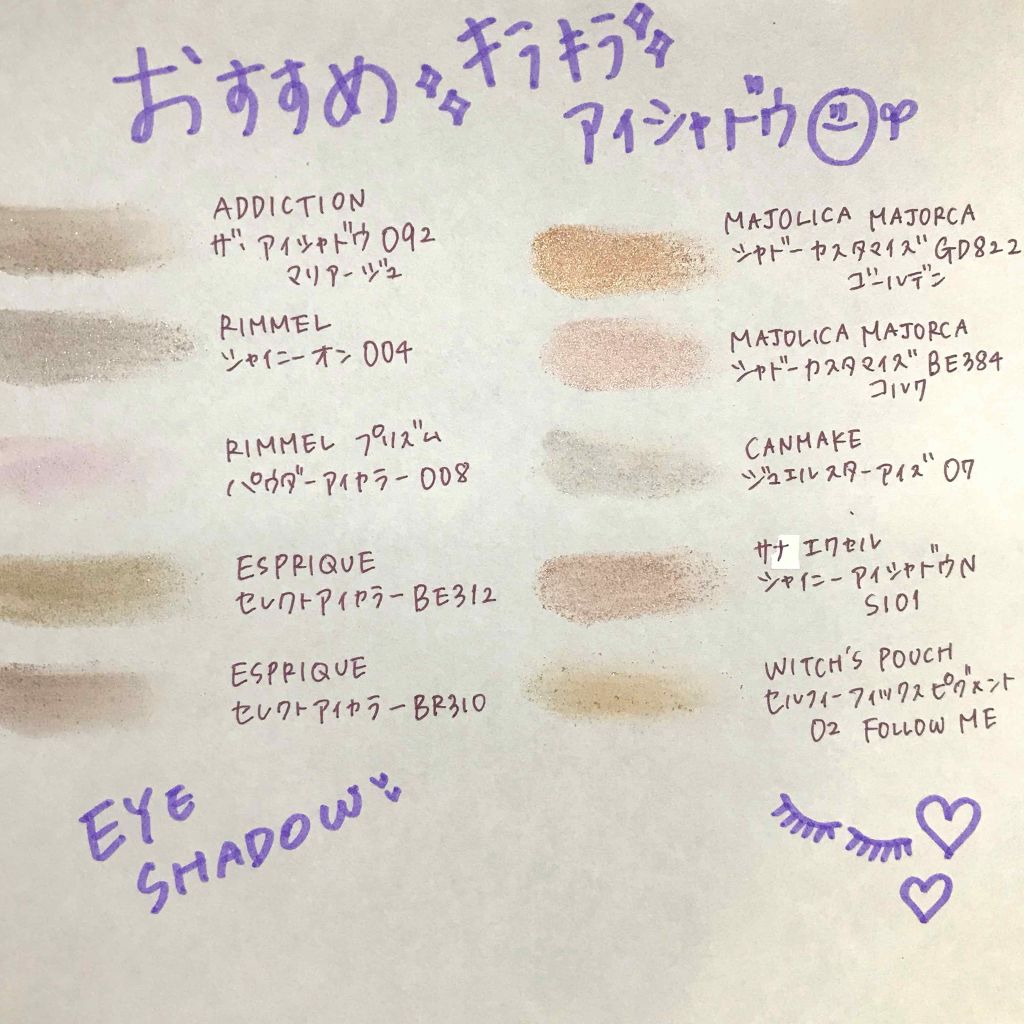 おすすめ キラキラ
アイシャドウ
ADDICTION
ザ・アイシャドウ 092
マリアージュ
RIMMEL
シャイニーオン 004
RIMMEL プリズム
パウダーアイカラー 008
ESPRIQUE
セレクトアイカラー BE312
ESPRIQUE
セレクトアイカラー BR310
MAJOLICA MAJORCA
シャドーカスタマイズ GD822
ゴールデン
MAJOLICA MAJORCA
シャドーカスタマイズ BE384
コルク
CANMAKE
ジュエルスターアイズ 07
サナ エクセル
シャイニーアイシャドウN
SI01
WITCH'S POUCH
セルフィーフィックスピグメント
02 FOLLOW ME
EYE
SHADOW